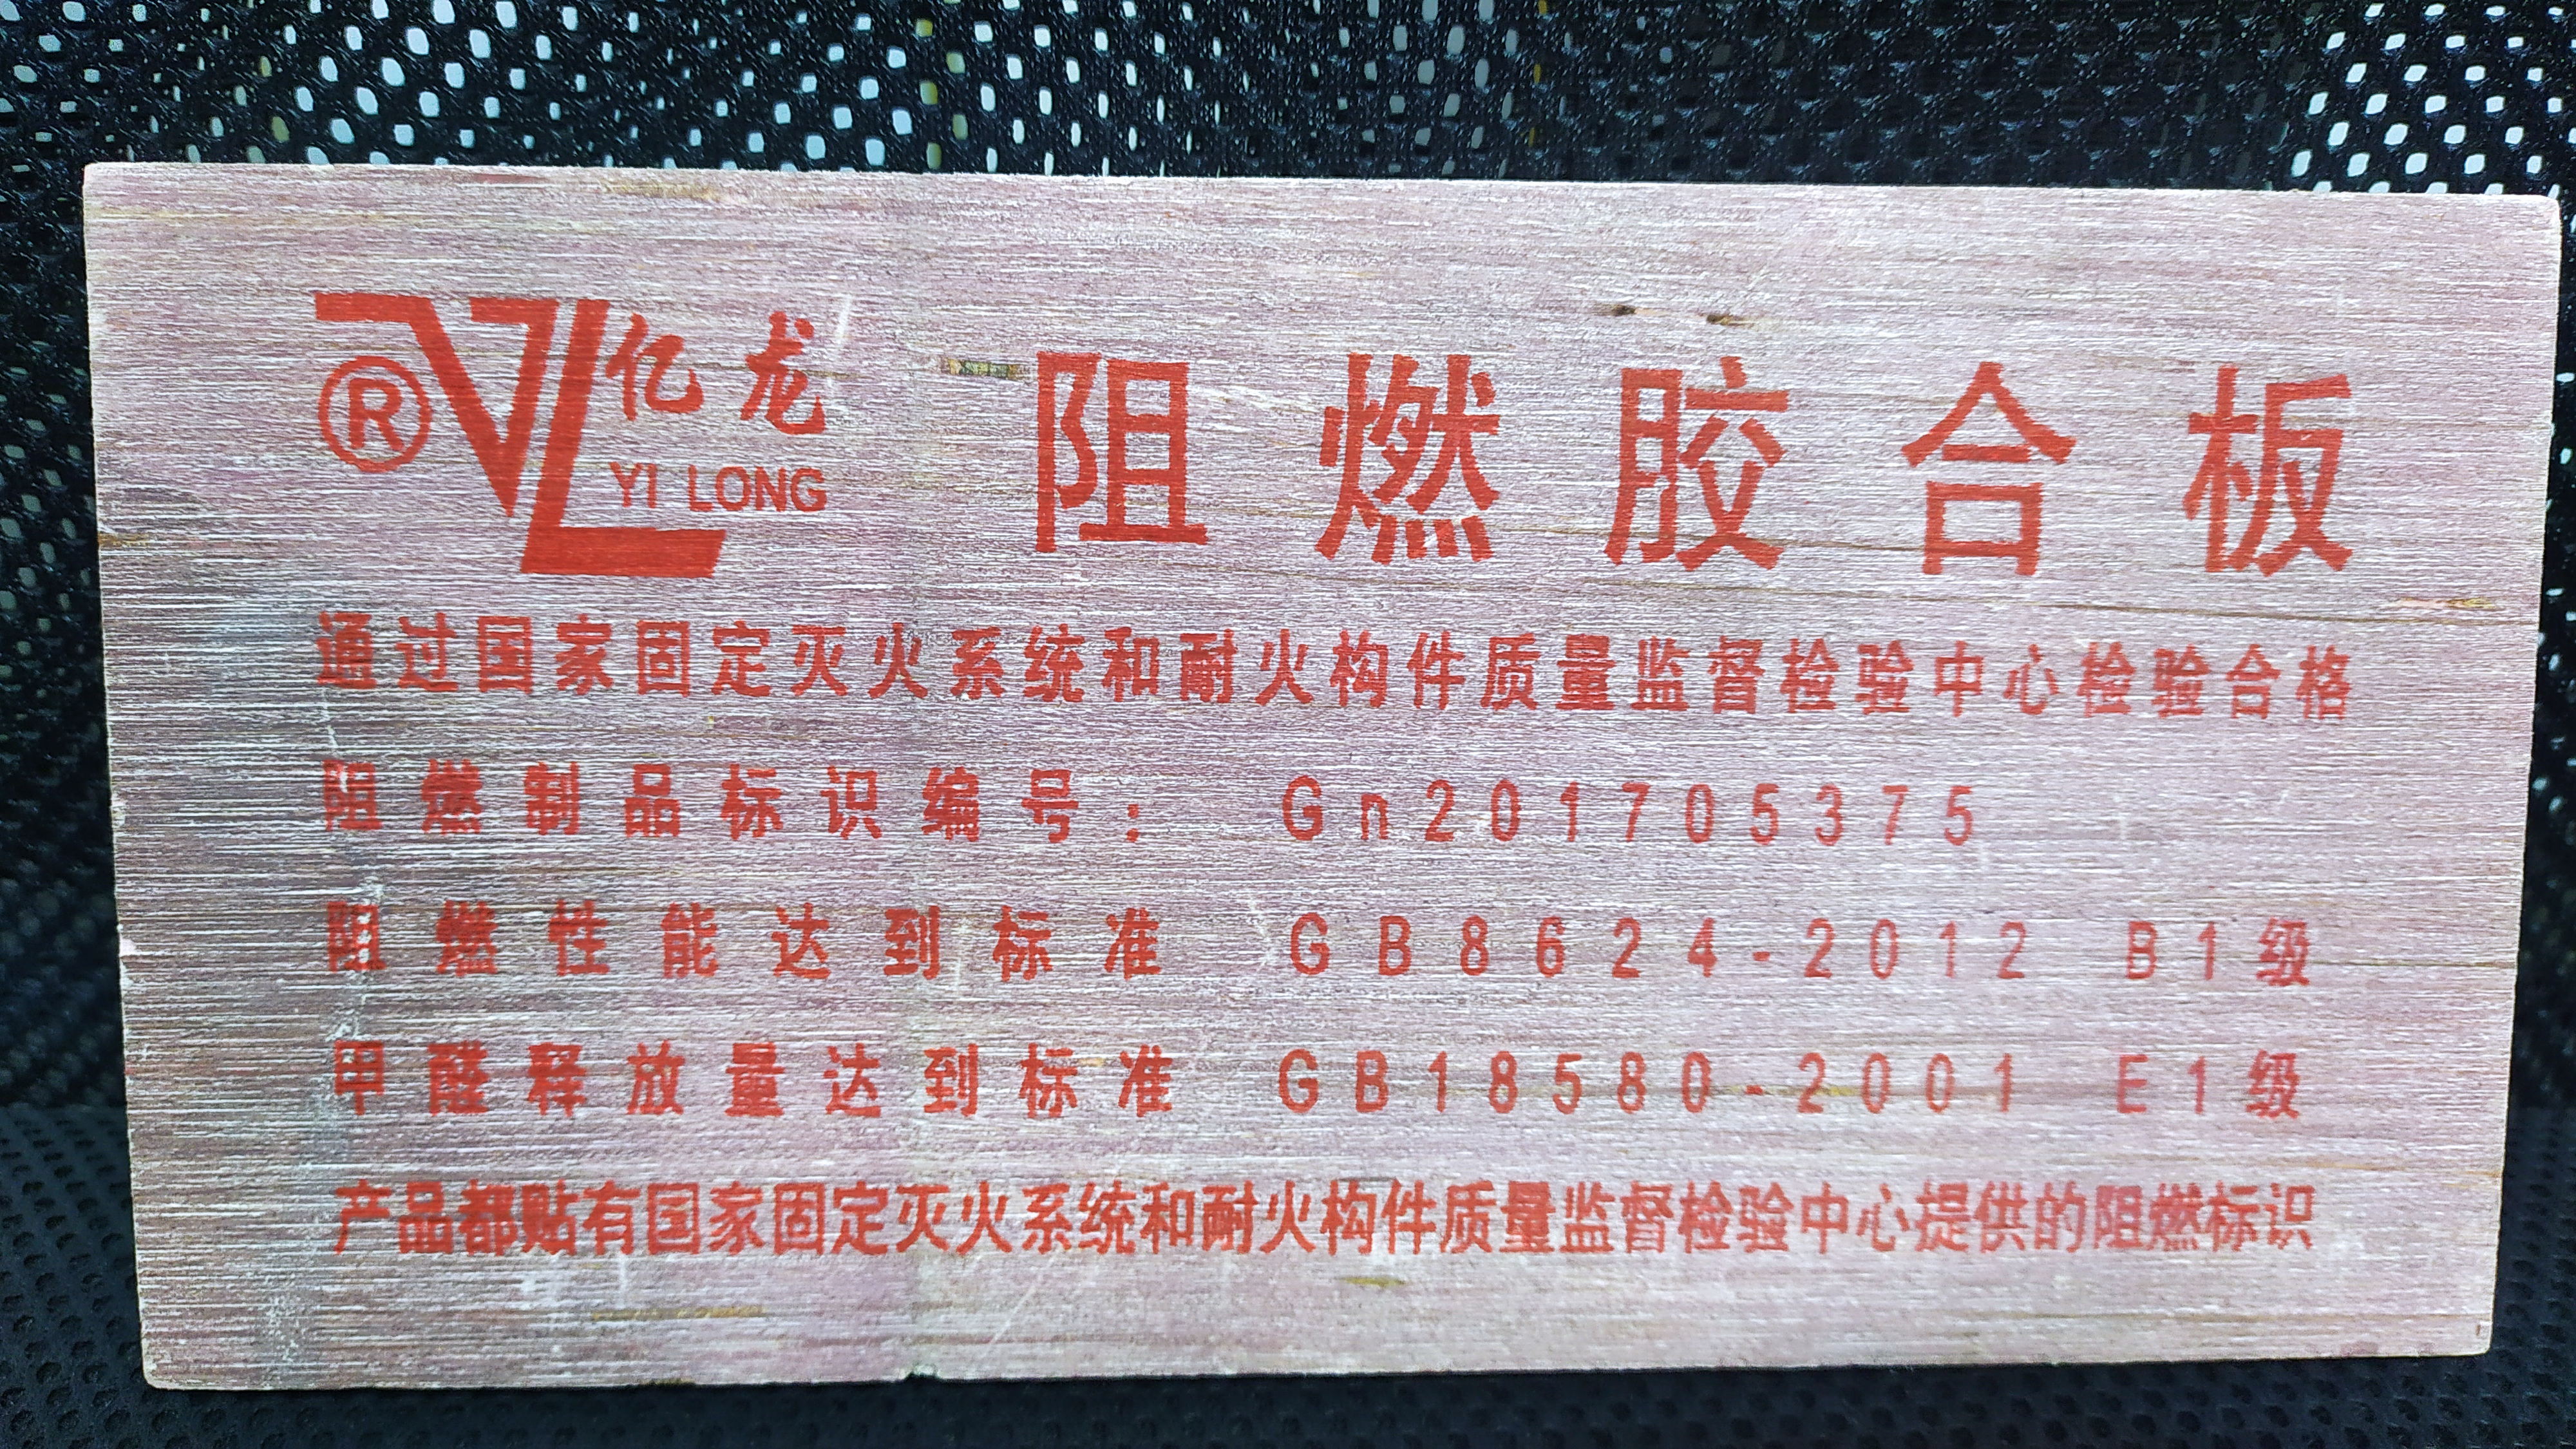 ® YL 亿龙 阻燃胶合板
YI LONG
通过国家固定灭火系统和耐火构件质量监督检验中心检验合格
阻燃制品标识编号： Gn201705375
阻燃性能达到标准 GB8624-2012 B1级
甲醛释放量达到标准 GB18580-2001 E1级
产品都贴有国家固定灭火系统和耐火构件质量监督检验中心提供的阻燃标识